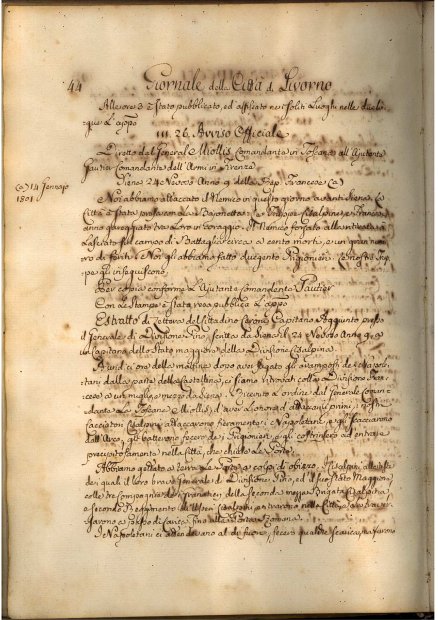 44 Giornale della Città di Livorno
Alle ore 3 è stato pubblicato, ed affissato nei soliti Luoghi nelle due lin-
gue L'app.o
N. 26. Avviso Officiale
Diretto dal General Miollis Comandante in Toscana all'Ajutante
Pautier Comandante dell'Armi in Firenze
Siena 24 Nevoso Anno 9 della Rep. Francese (a)
(a) 14 Gennajo
1801
Noi abbiamo attaccato il Nemico in questo giorno avanti Siena. La
Città è stata presa alla Bajonetta; le Truppe Cisalpine, e Francesi
anno gareggiato tra loro in coraggio. Il Nemico forzato alla ritirata à
lasciato sul campo di Battaglia circa a cento morti, e un gran nume-
ro di feriti. Noi gli abbiamo fatto duegento Prigionieri. Le nostre Trup-
pe gli inseguiscono.
Per copia conforme L'Ajutante Comandante Pautier
Con le stampe è stata resa pubblica l'app.o
Estratto di Lettera del Cittadino Capitano Aggiunto presso
il Generale di Divisione Pino, scritta da Siena il 24 Nevoso Anno 9. a
Capitano dello Stato maggiore della Divisione Cisalpina
A undici ore della mattina dopo aver fugato gli avamposti de' Napoli-
tani dalla parte della Castellina, ci siamo ritrovati colla Divisione Fran-
cese a un miglio, e mezzo da Siena. Ricevuto l'ordine dal Generale Coman-
dante la Toscana Miollis, d'aver l'onore d'attaccare i primi; i nostri
Cacciatori Cisalpini attaccarono fieramente i Napoletani, e gli scacciarono
dall'Arco, gli batterono fecero de' Prigionieri, e gli costrinsero ad entrare
precipitosamente nella Città, che chiuse le Porte.
Abbiamo gettato a terra la Porta a colpi di obizzo. I Cisalpini alla testa
dei quali il loro bravo Generale di Divisione Pino, ed il suo Stato Maggiore
colle tre Compagnie dei Granatieri della seconda mezza Brigata Cisalpina,
e secondo Reggimento d'Ussari Cisalpini penetrarono nella Città, e attraver-
sarono a passo di Carica fino alla Porta Romana.
I Napoletani ci attendevano al di fuori, fecero qualche scarica, ma furono